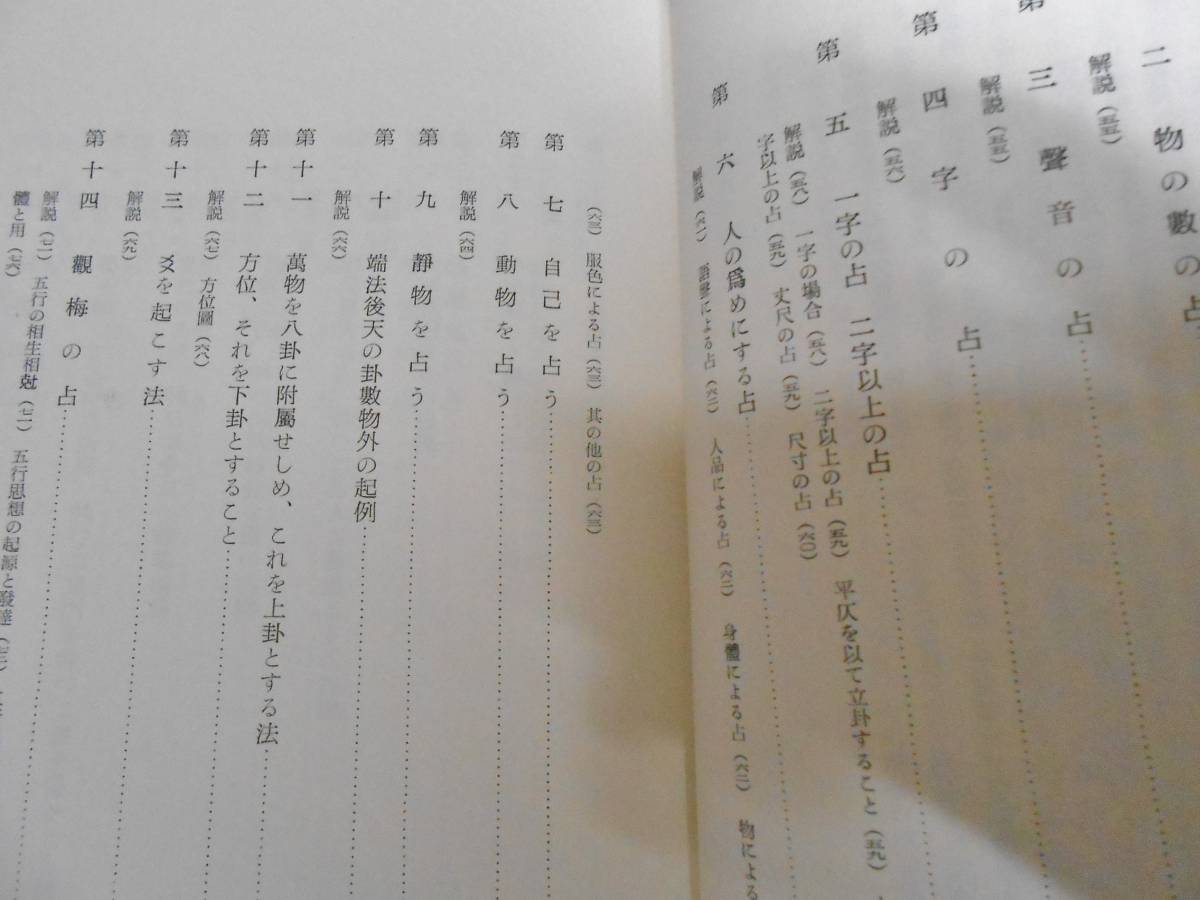 二 物の數の占
解説(五五)
第三 聲音の占
解説(五五)
第四 字の占
解説(五六)
第五 一字の占 二字以上の占
解説(五八) 一字の場合(五八) 二字以上の占(五九) 平仄を以て立卦すること(五九)
字以上の占(五九) 丈尺の占(五九) 尺寸の占(六〇)
第六 人の爲めにする占
解説(六一) 語聲による占(六二) 人品による占(六二) 身體による占(六二) 物による
(六三) 服色による占(六三) 其の他の占(六三)
第七 自己を占う
第八 動物を占う
解説(六四)
第九 靜物を占う
第十 端法後天の卦數物外の起例
解説(六六)
第十一 萬物を八卦に附屬せしめ、これを上卦とする法
第十二 方位、それを下卦とすること
解説(六七) 方位圖(六八)
第十三 爻を起こす法
解説(六九)
第十四 觀梅の占
解説(七一) 五行の相生相尅(七二) 五行思想の起源と發達
體と用(七六)